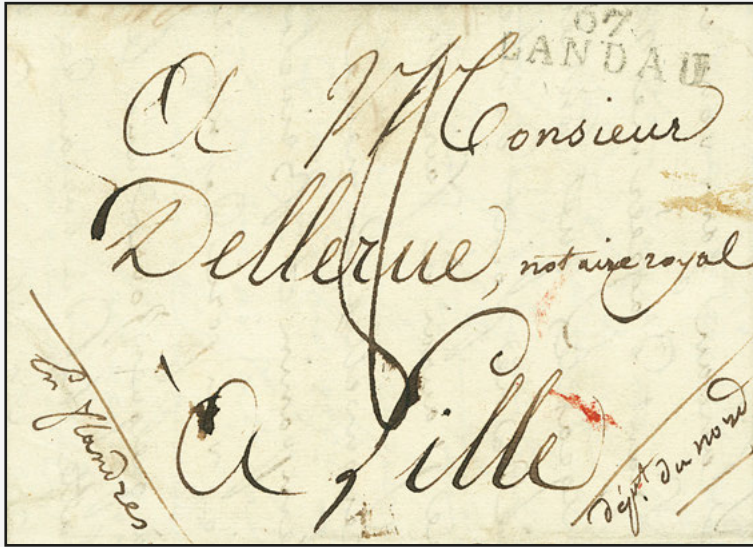 67
LANDAU
A Monsieur
Dellerue, notaire royal
à Lille
En flandres
dépt. du nord